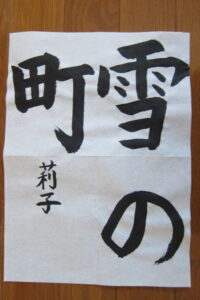 雪の
町
莉子